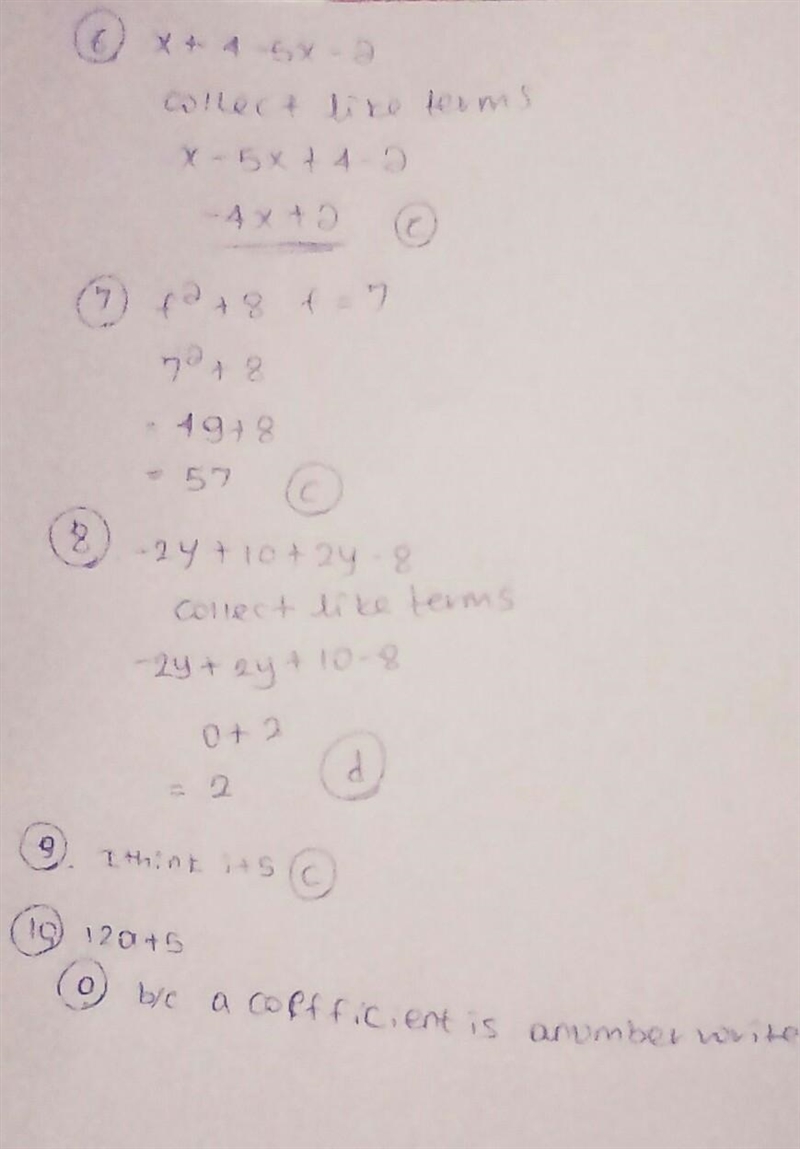 6 x + 4 - 5x - 2
collect like terms
x - 5x + 4 - 2
-4x + 2 c
7 f² + 8 f = 7
7² + 8
= 49 + 8
= 57 c
8 -2y + 10 + 2y - 8
collect like terms
-2y + 2y + 10 - 8
0 + 2
= 2 d
9. I think its c
10 12a + 5
a b/c a coefficient is a number write